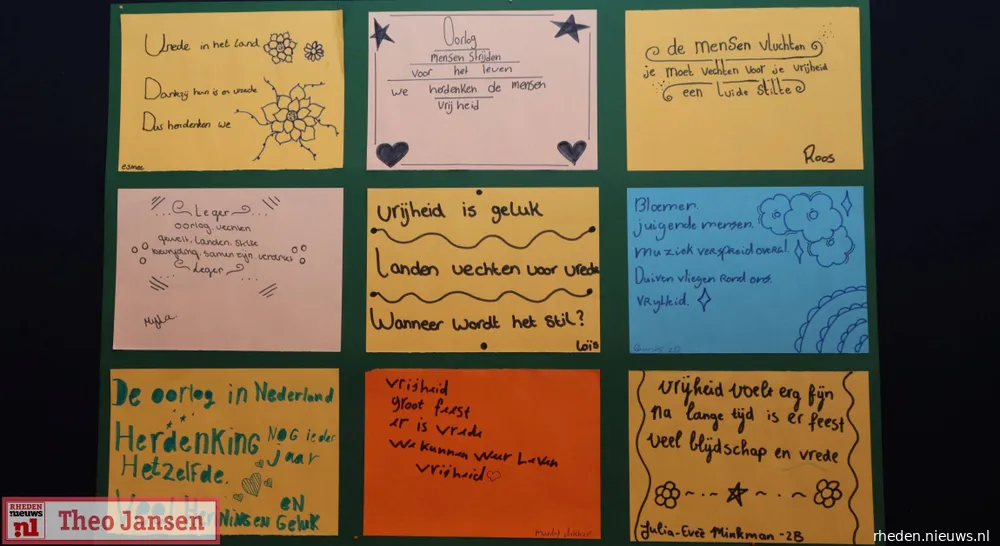 Vrede in het Land
Dankzij hun is er vrede
Dus herdenken we
esmee
Oorlog
mensen strijden
voor het leven
we herdenken de mensen
vrijheid
de mensen vluchten
je moet vechten voor je vrijheid
een luide stilte
Roos
Leger
oorlog, vechten
geweld, Landen, stilte
bevrijding, samen zijn, verdriet
Leger
vrijheid is geluk
Landen vechten voor vrede
Wanneer wordt het stil?
Loïs
Bloemen.
juigende mensen.
muziek verspreid overal.
Duiven vliegen rond ons.
vrijheid.
De oorlog in Nederland
Herdenking NOG ieder
jaar
Hetzelfde.
en
Geluk
vrijheid
groot feest
er is vrede
we kunnen weer Leven
vrijheid
vrijheid voelt erg fijn
na lange tijd is er feest
veel blijdschap en vrede
Julia-Eveè Minkman -2B
RHEDEN
nieuws
.nl
Theo Jansen
rheden.nieuws.nl